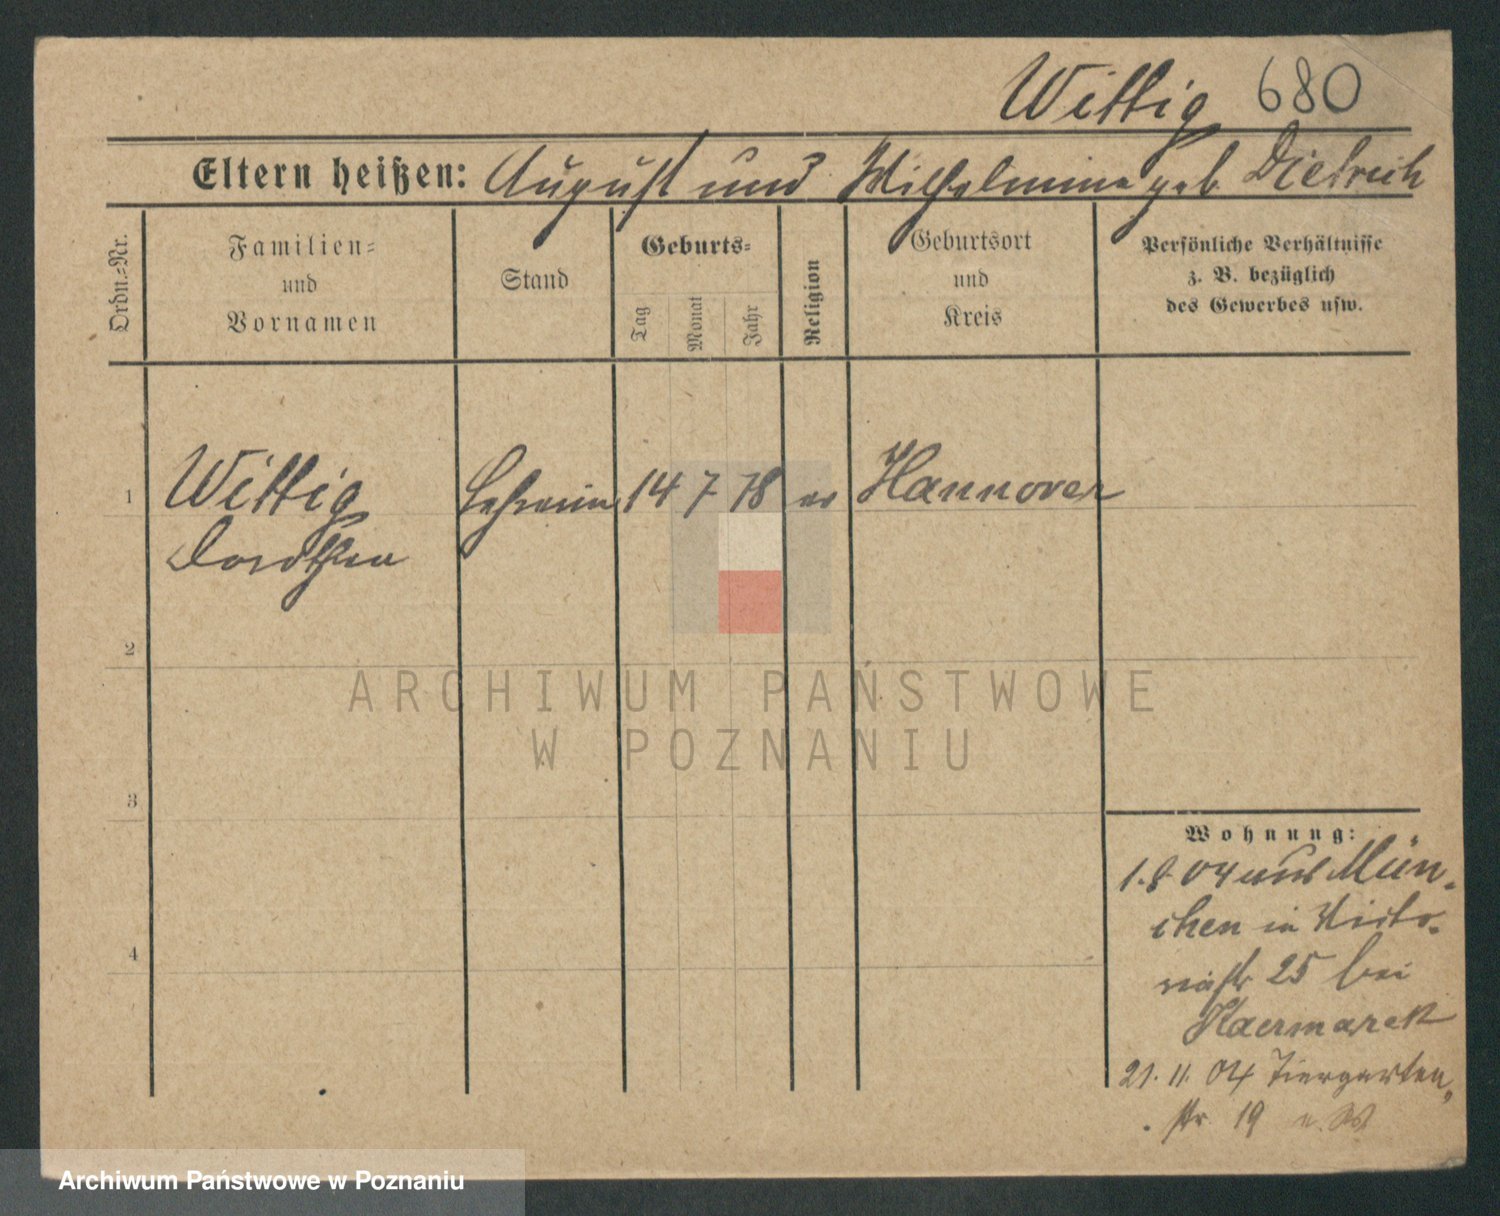 Wittig 680
Eltern heißen: August und Wilhelmine geb Dietrich
Ordn.=Nr.
Familien=
und
Vornamen
Stand
Geburts=
Tag
Monat
Jahr
Religion
Geburtsort
und
Kreis
Persönliche Verhältnisse
z. B. bezüglich
des Gewerbes usw.
1 Wittig Lehrerin 14 7 78 ev Hannover
Dorothea
2
3
4
Wohnung:
1.8 04 aus Mün-
chen in Victo-
riastr 25 bei
Kaczmarek
21. 11. 04 Tiergarten,
str. 19
ARCHIWUM PAŃSTWOWE
W POZNANIU
Archiwum Państwowe w Poznaniu